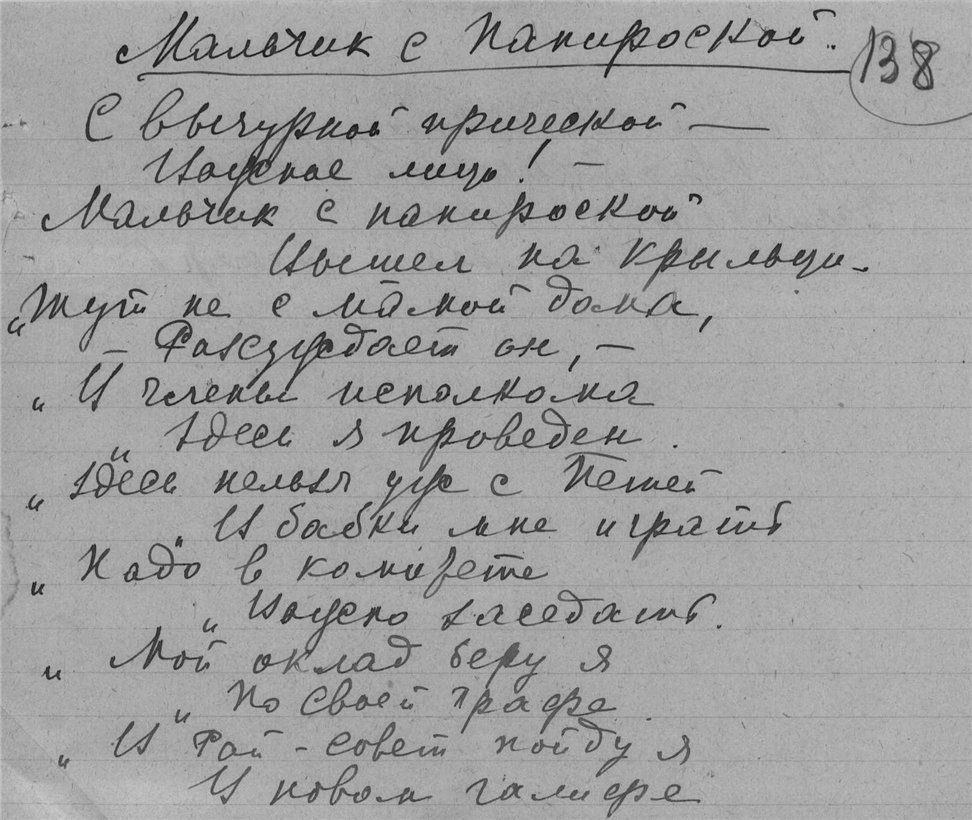 Мальчик с папироской.
138
С вычурной прической —
Важное лицо! —
Мальчик с папироской
Вышел на крыльцо.
„Тут не с мамой дома,
— Рассуждает он, —
„В члены исполкома
„Здесь я проведен.
„Здесь нельзя уж с Петей
„В бабки мне играть
„Надо в комитете
„Важно заседать.
„Мой оклад беру я
„По своей графе.
„В Рай-совет пойду я
В новом галифе